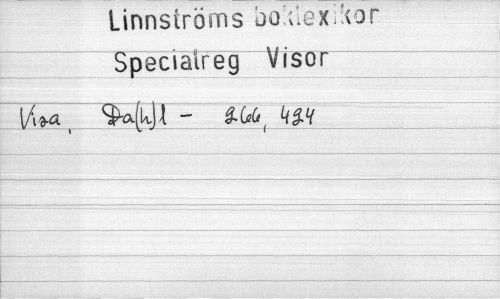 Linnströms boklexikor
Specialreg Visor
Visa, Da(h)l - 266, 424